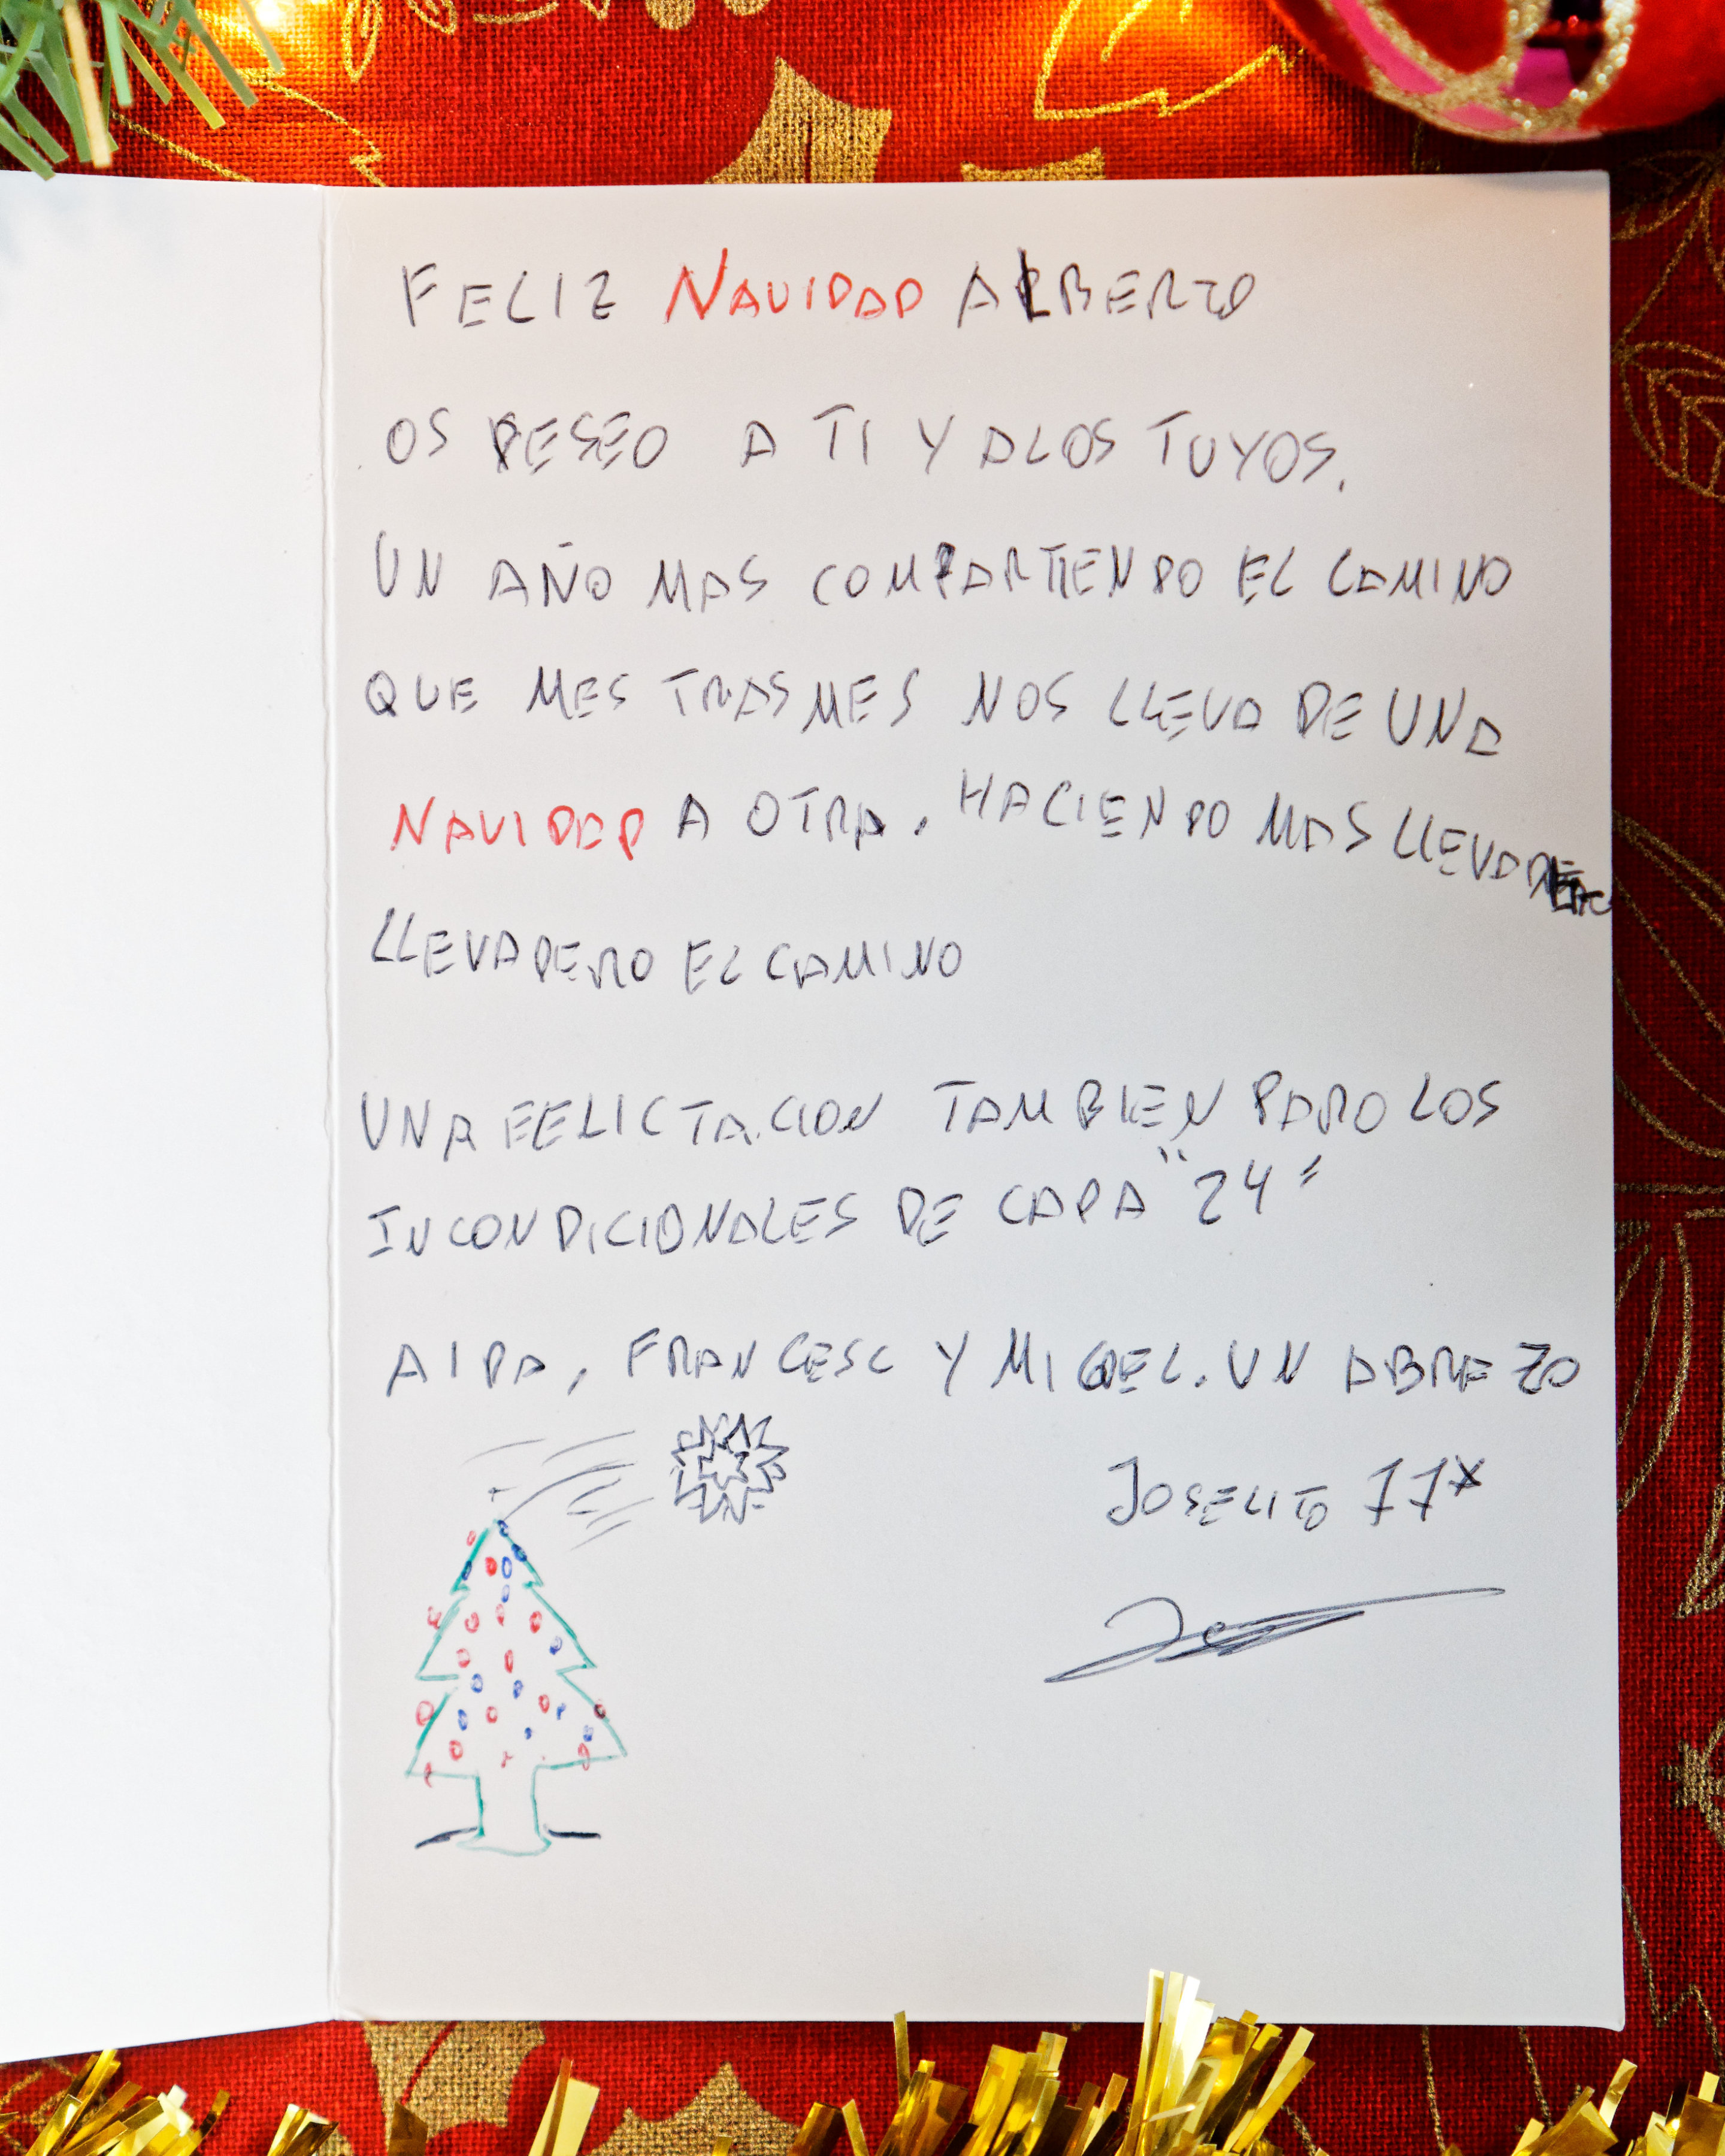 FELIZ NAVIDAD ALBERTO
OS DESEO A TI Y A LOS TUYOS.
UN AÑO MAS COMPARTIENDO EL CAMINO
QUE MES TRAS MES NOS LLEVA DE UNA
NAVIDAD A OTRA. HACIENDO MAS
LLEVADERO EL CAMINO
UNA FELICTACION TAMBIEN PARO LOS
INCONDICIONALES DE CAPA "24"
AIDA, FRANCESC Y MIQEL. UN ABREZO
JOSELITO 77*